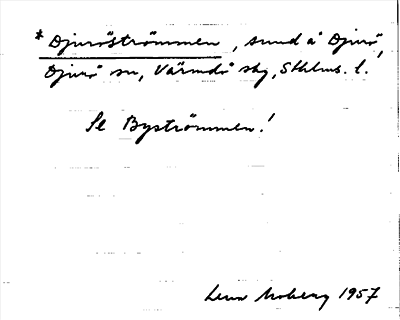 * Djuröströmmen, sund å Djurö,
Djurö sn, Värmdö skg, Sthlms. l.
Se Byströmmen!
Lena Moberg 1957